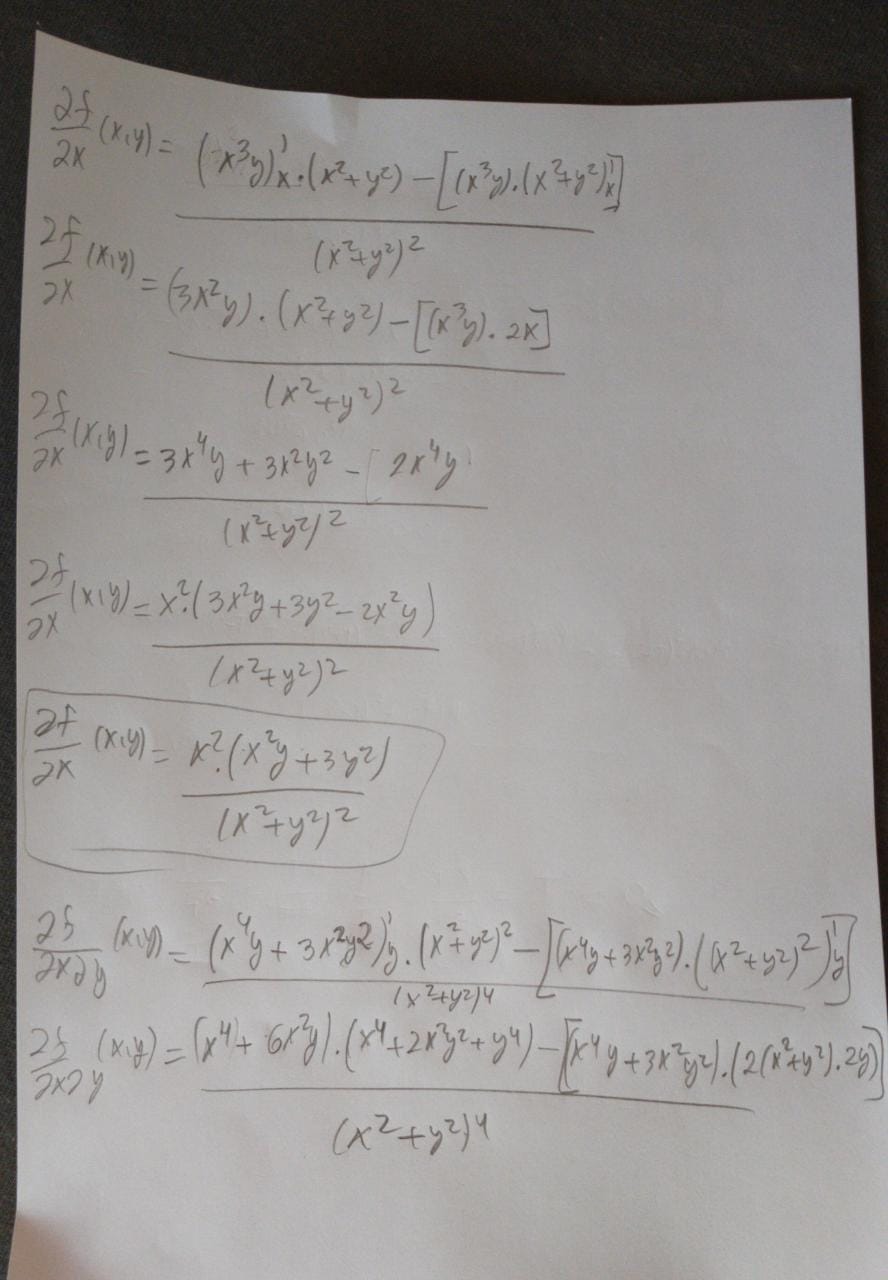 ∂f/∂x (x,y) = ((x³y)'ₓ · (x²+y²) − [(x³y)·(x²+y²)'ₓ]) / (x²+y²)²
∂f/∂x (x,y) = ((3x²y) · (x²+y²) − [(x³y) · 2x]) / (x²+y²)²
∂f/∂x (x,y) = (3x⁴y + 3x²y² − [2x⁴y) / (x²+y²)²
∂f/∂x (x,y) = x²·(3x²y + 3y² − 2x²y) / (x²+y²)²
∂f/∂x (x,y) = x²·(x²y + 3y²) / (x²+y²)²
∂f/∂x∂y (x,y) = ((x⁴y + 3x²y²)'y · (x²+y²)² − [(x⁴y + 3x²y²)·((x²+y²)²)'y]) / (x²+y²)⁴
∂f/∂x∂y (x,y) = ((x⁴) + 6x²y)·(x⁴ + 2x²y² + y⁴) − [(x⁴y + 3x²y²)·(2(x²+y²)·2y)] / (x²+y²)⁴